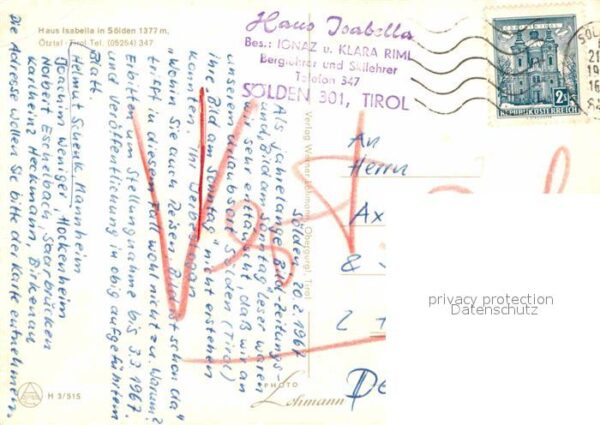 Haus Isabella in Sölden 1377 m,
Ötztal-Tirol Tel. (05254) 347
Haus Isabella
Bes.: IGNAZ u. KLARA RIML
Bergführer und Skilehrer
Telefon 347
SÖLDEN 301, TIROL
2 S
REPUBLIK ÖSTERREICH
Sölden 20.2.1967
Als jahrelange Bild-Zeitungs-
und "Bild am Sonntag" leser waren
wir sehr enttäuscht, daß wir an
unserem Urlaubsort Sölden (Tirol)
ihre "Bild am Sonntag" nicht erstehen
konnten. Ihr Werbeslogan
"Wohin Sie auch reisen Bild ist schon da"
trifft in diesem Fall wohl nicht zu. Warum?
Erbitten Stellungnahme bis 3.3.1967.
und Veröffentlichung in obig aufgeführtem
Blatt.
Helmut Schenk, Mannheim
Jochim Weniger, Hockenheim
Norbert Eschelbach, Saarbrücken
Karlheinz Heckmann, Birkenau
Die Adresse wollen Sie bitte der Karte entnehmen.
An
Herrn
Ax
&
2
De
PHOTO
Lohmann
Obergurgl, Tirol
H 3/515
privacy protection
Datenschutz